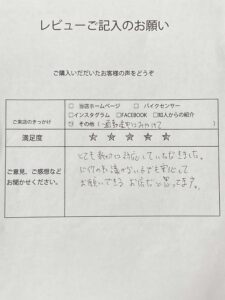 レビューご記入のお願い
ご購入いただいたお客様の声をどうぞ
ご来店のきっかけ
□ 当店ホームページ □ バイクセンサー
□インスタグラム □FACEBOOK □知人からの紹介
☑ その他（通勤途中にみかけて）
満足度
★ ★ ★ ★ ★
ご意見、ご感想など
お聞かせください。
とても親切に対応していただきました。
バイクの知識がない方でも安心して
お願いできるお店だと思ってます。